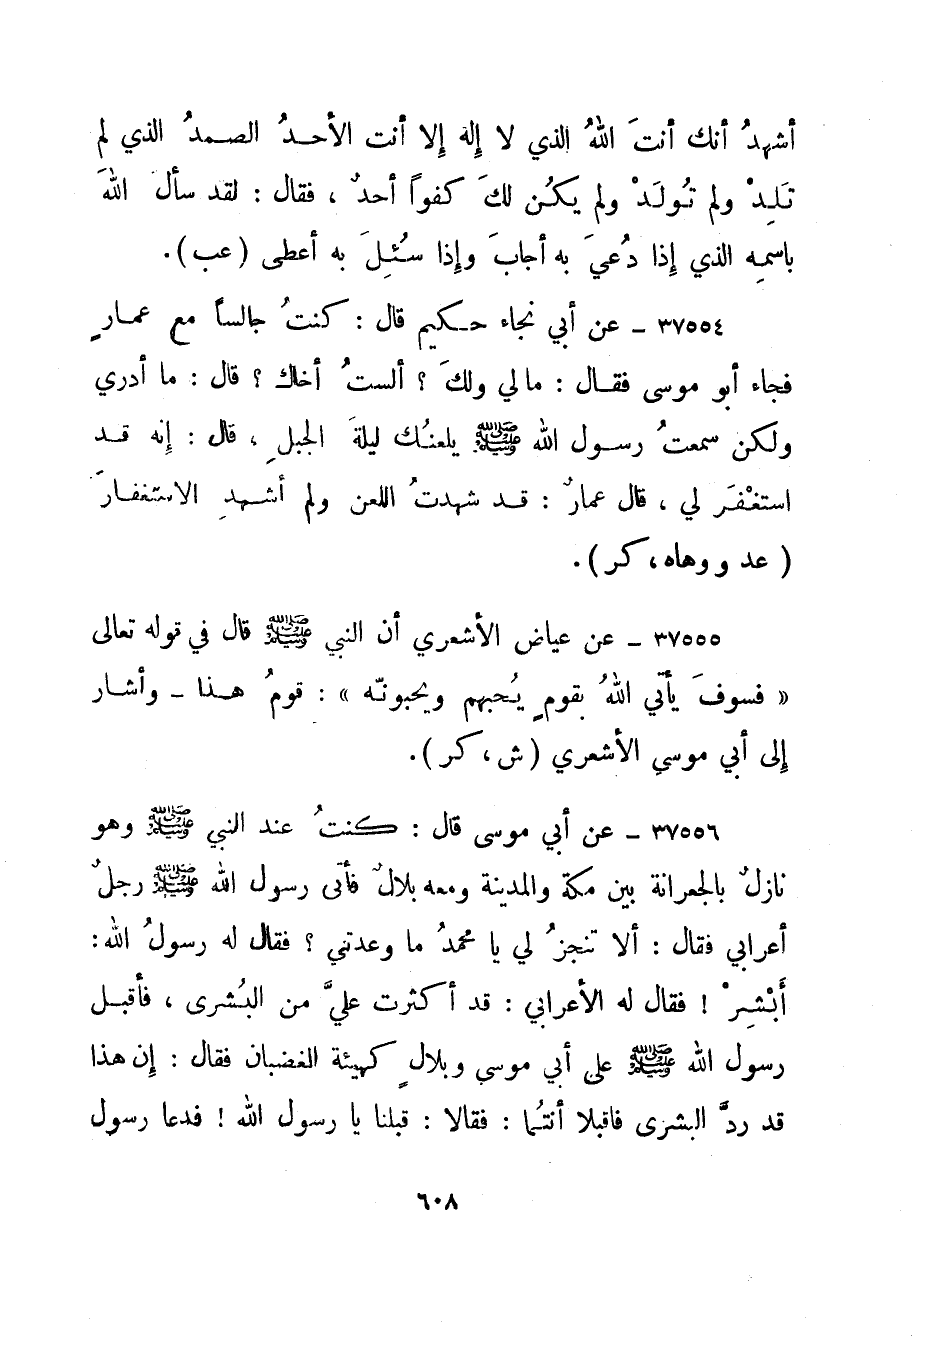 أشهدُ أنك أنتَ اللهُ الذي لا إله إلا أنت الأحدُ الصمدُ الذي لم
تَلِدْ ولم تُولَدْ ولم يكُن لكَ كفواً أحدٌ ، فقال : لقد سأل اللهَ
باسمِه الذي إذا دُعيَ به أجابَ وإذا سُئِلَ به أعطى (عب).
٣٧٥٥٤ ـ عن أبي نجاء حكيم قال : كنتُ جالساً مع عمارٍ
فجاء أبو موسى فقال : ما لي ولكَ ؟ ألستُ أخاك ؟ قال : ما أدري
ولكن سمعتُ رسول الله ﷺ يلعنُك ليلةَ الجبلِ ، قال : إنه قد
استغْفَرَ لي ، قال عمارٌ : قد شهدتُ اللعن ولم أشهدِ الاستغفارَ
( عد ووهاه، كر).
٣٧٥٥٥ ـ عن عياض الأشعري أن النبي ﷺ قال في قوله تعالى
« فسوفَ يأتي اللهُ بقومٍ يُحبهم ويحبونَه » : قومُ هذا ـ وأشار
إلى أبي موسى الأشعري (ش، كر).
٣٧٥٥٦ ـ عن أبي موسى قال : كنتُ عند النبي ﷺ وهو
نازلٌ بالجعرانة بين مكة والمدينة ومعه بلالٌ فأتى رسول الله ﷺ رجلٌ
أعرابي فقال : ألا تنجزُ لي يا محمدُ ما وعدتني ؟ فقال له رسولُ الله :
أَبْشِرْ ! فقال له الأعرابي : قد أكثرت عليَّ من البُشرى ، فأقبل
رسول الله ﷺ على أبي موسى وبلالٍ كهيئة الغضبان فقال : إن هذا
قد ردَّ البشرى فاقبلا أنتُما : فقالا : قبلنا يا رسول الله ! فدعا رسول
٦٠٨